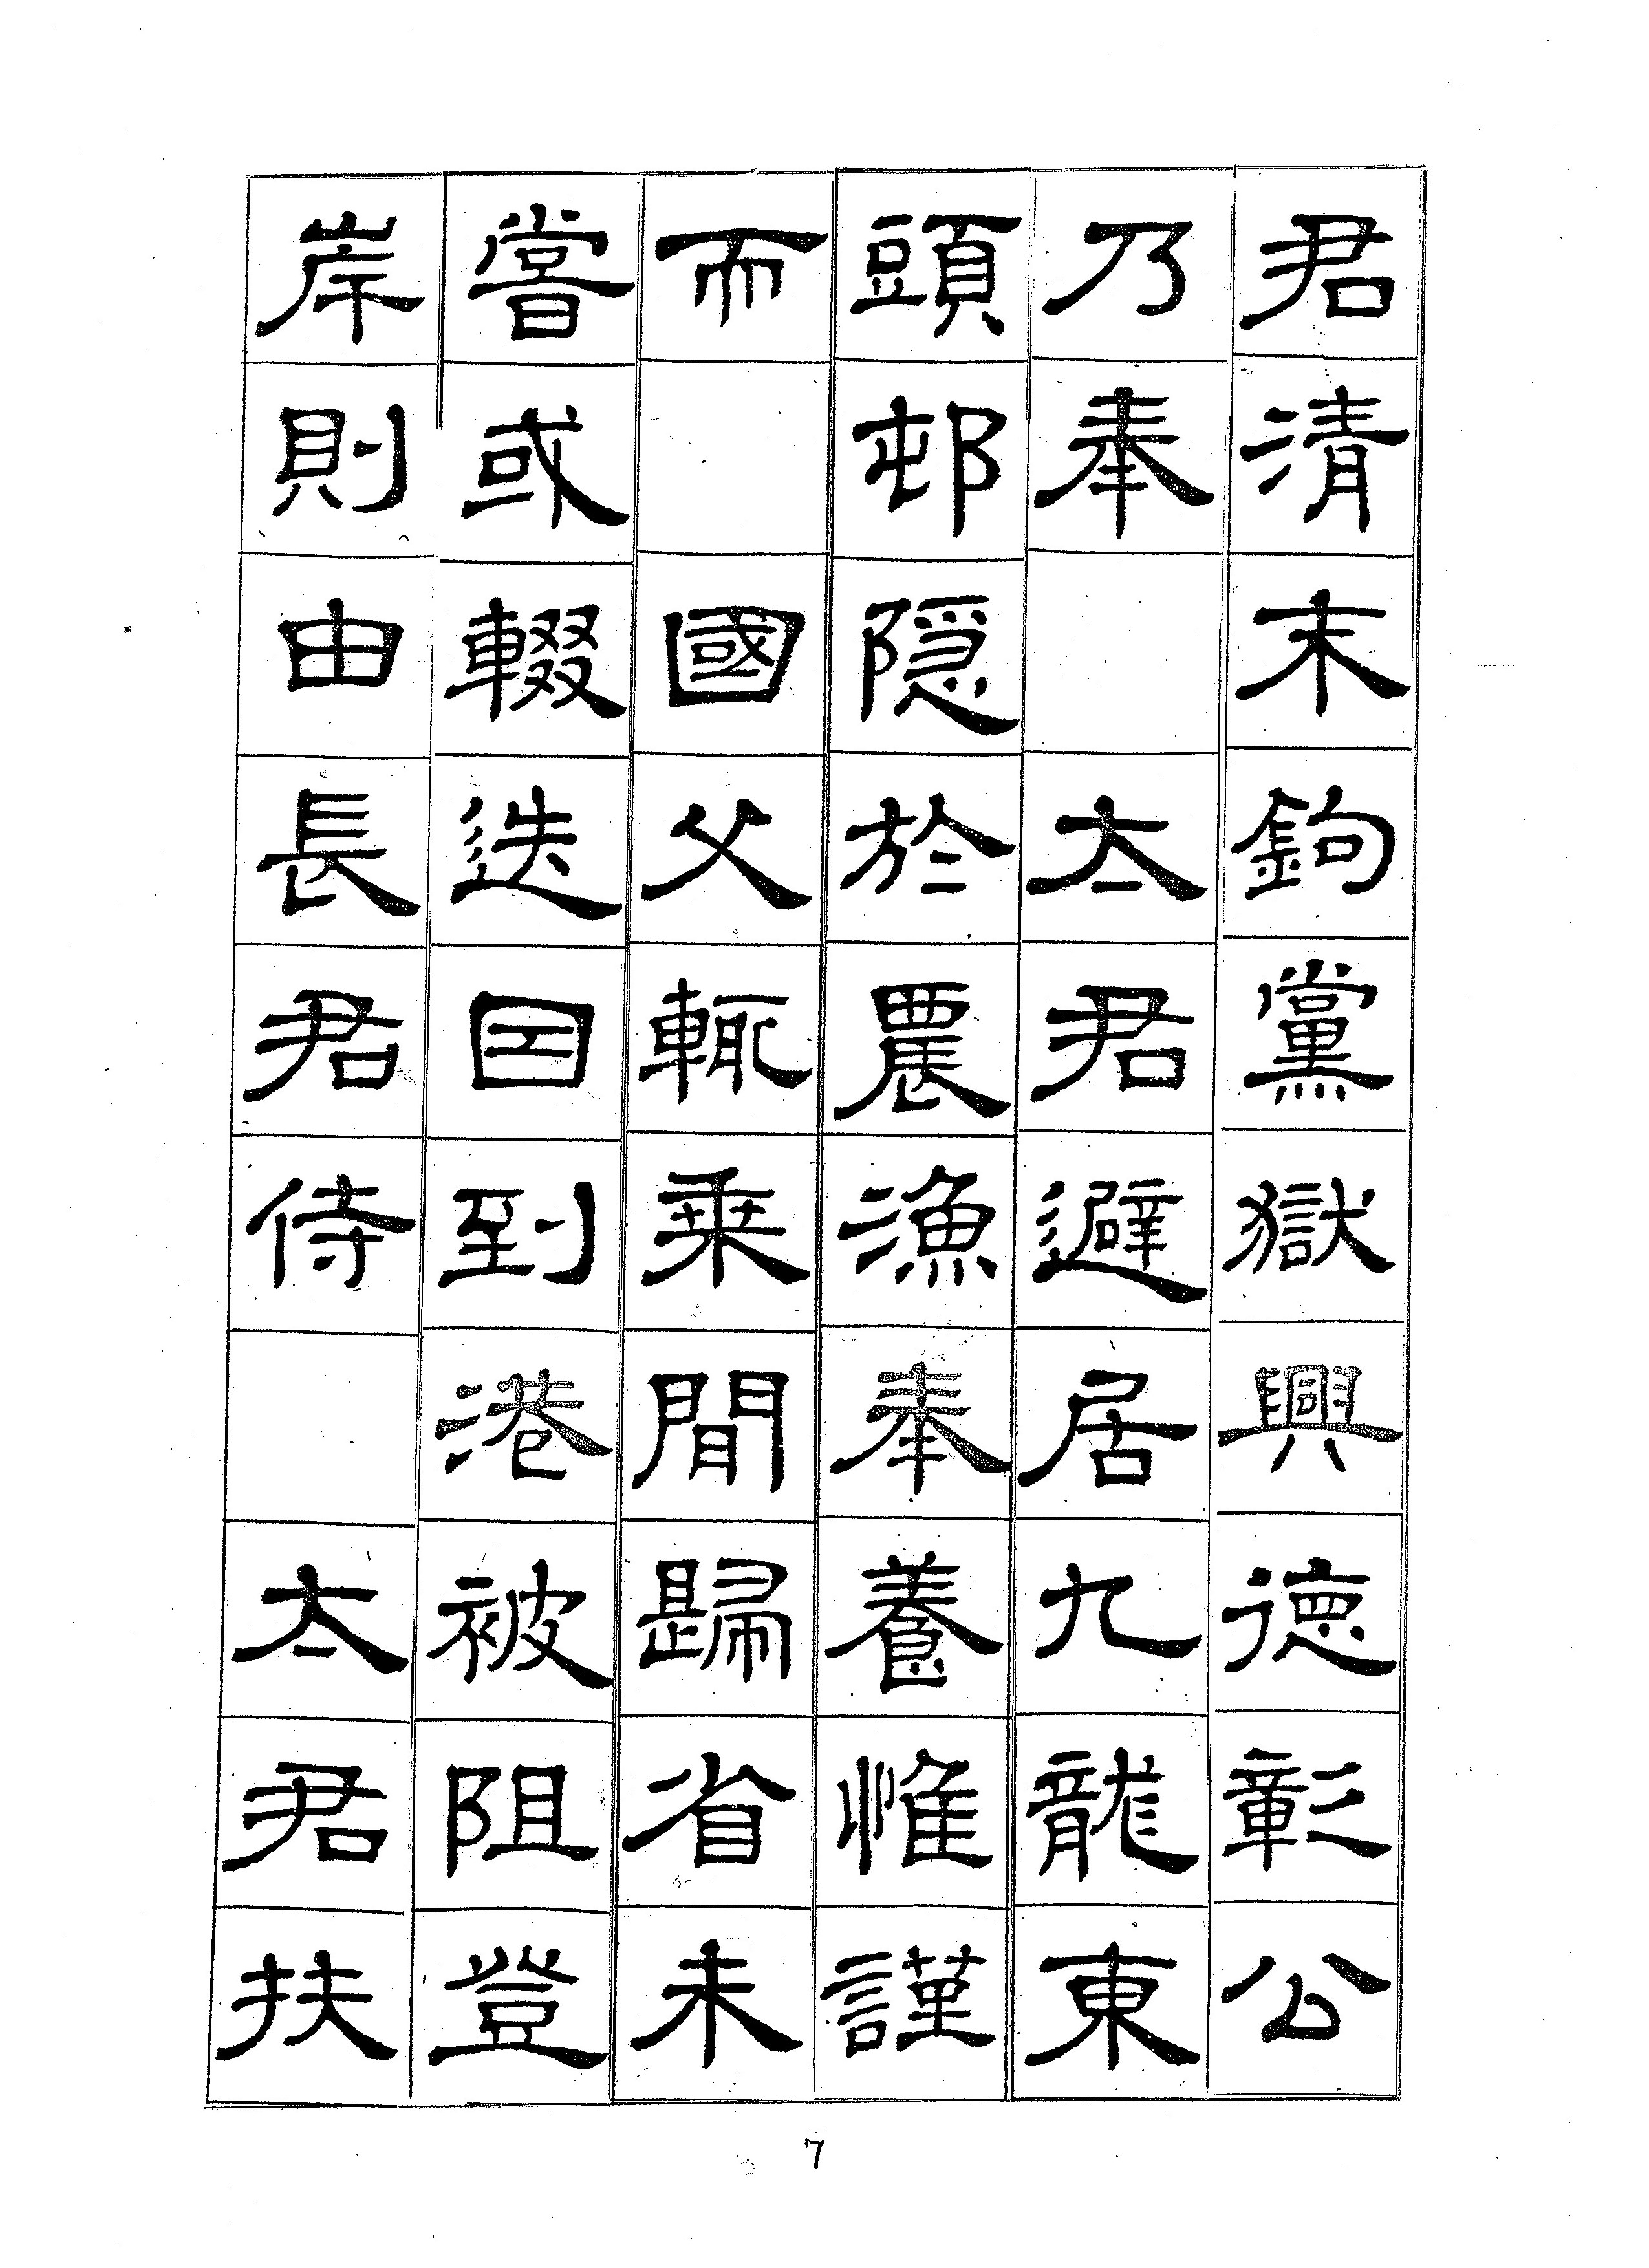 君清末鉤黨獄興德彰公
乃奉　太君避居九龍東
頭邨隱於農漁奉養惟謹
而　國父輒乘間歸省未
嘗或輟迭因到港被阻登
岸則由長君侍　太君扶
7